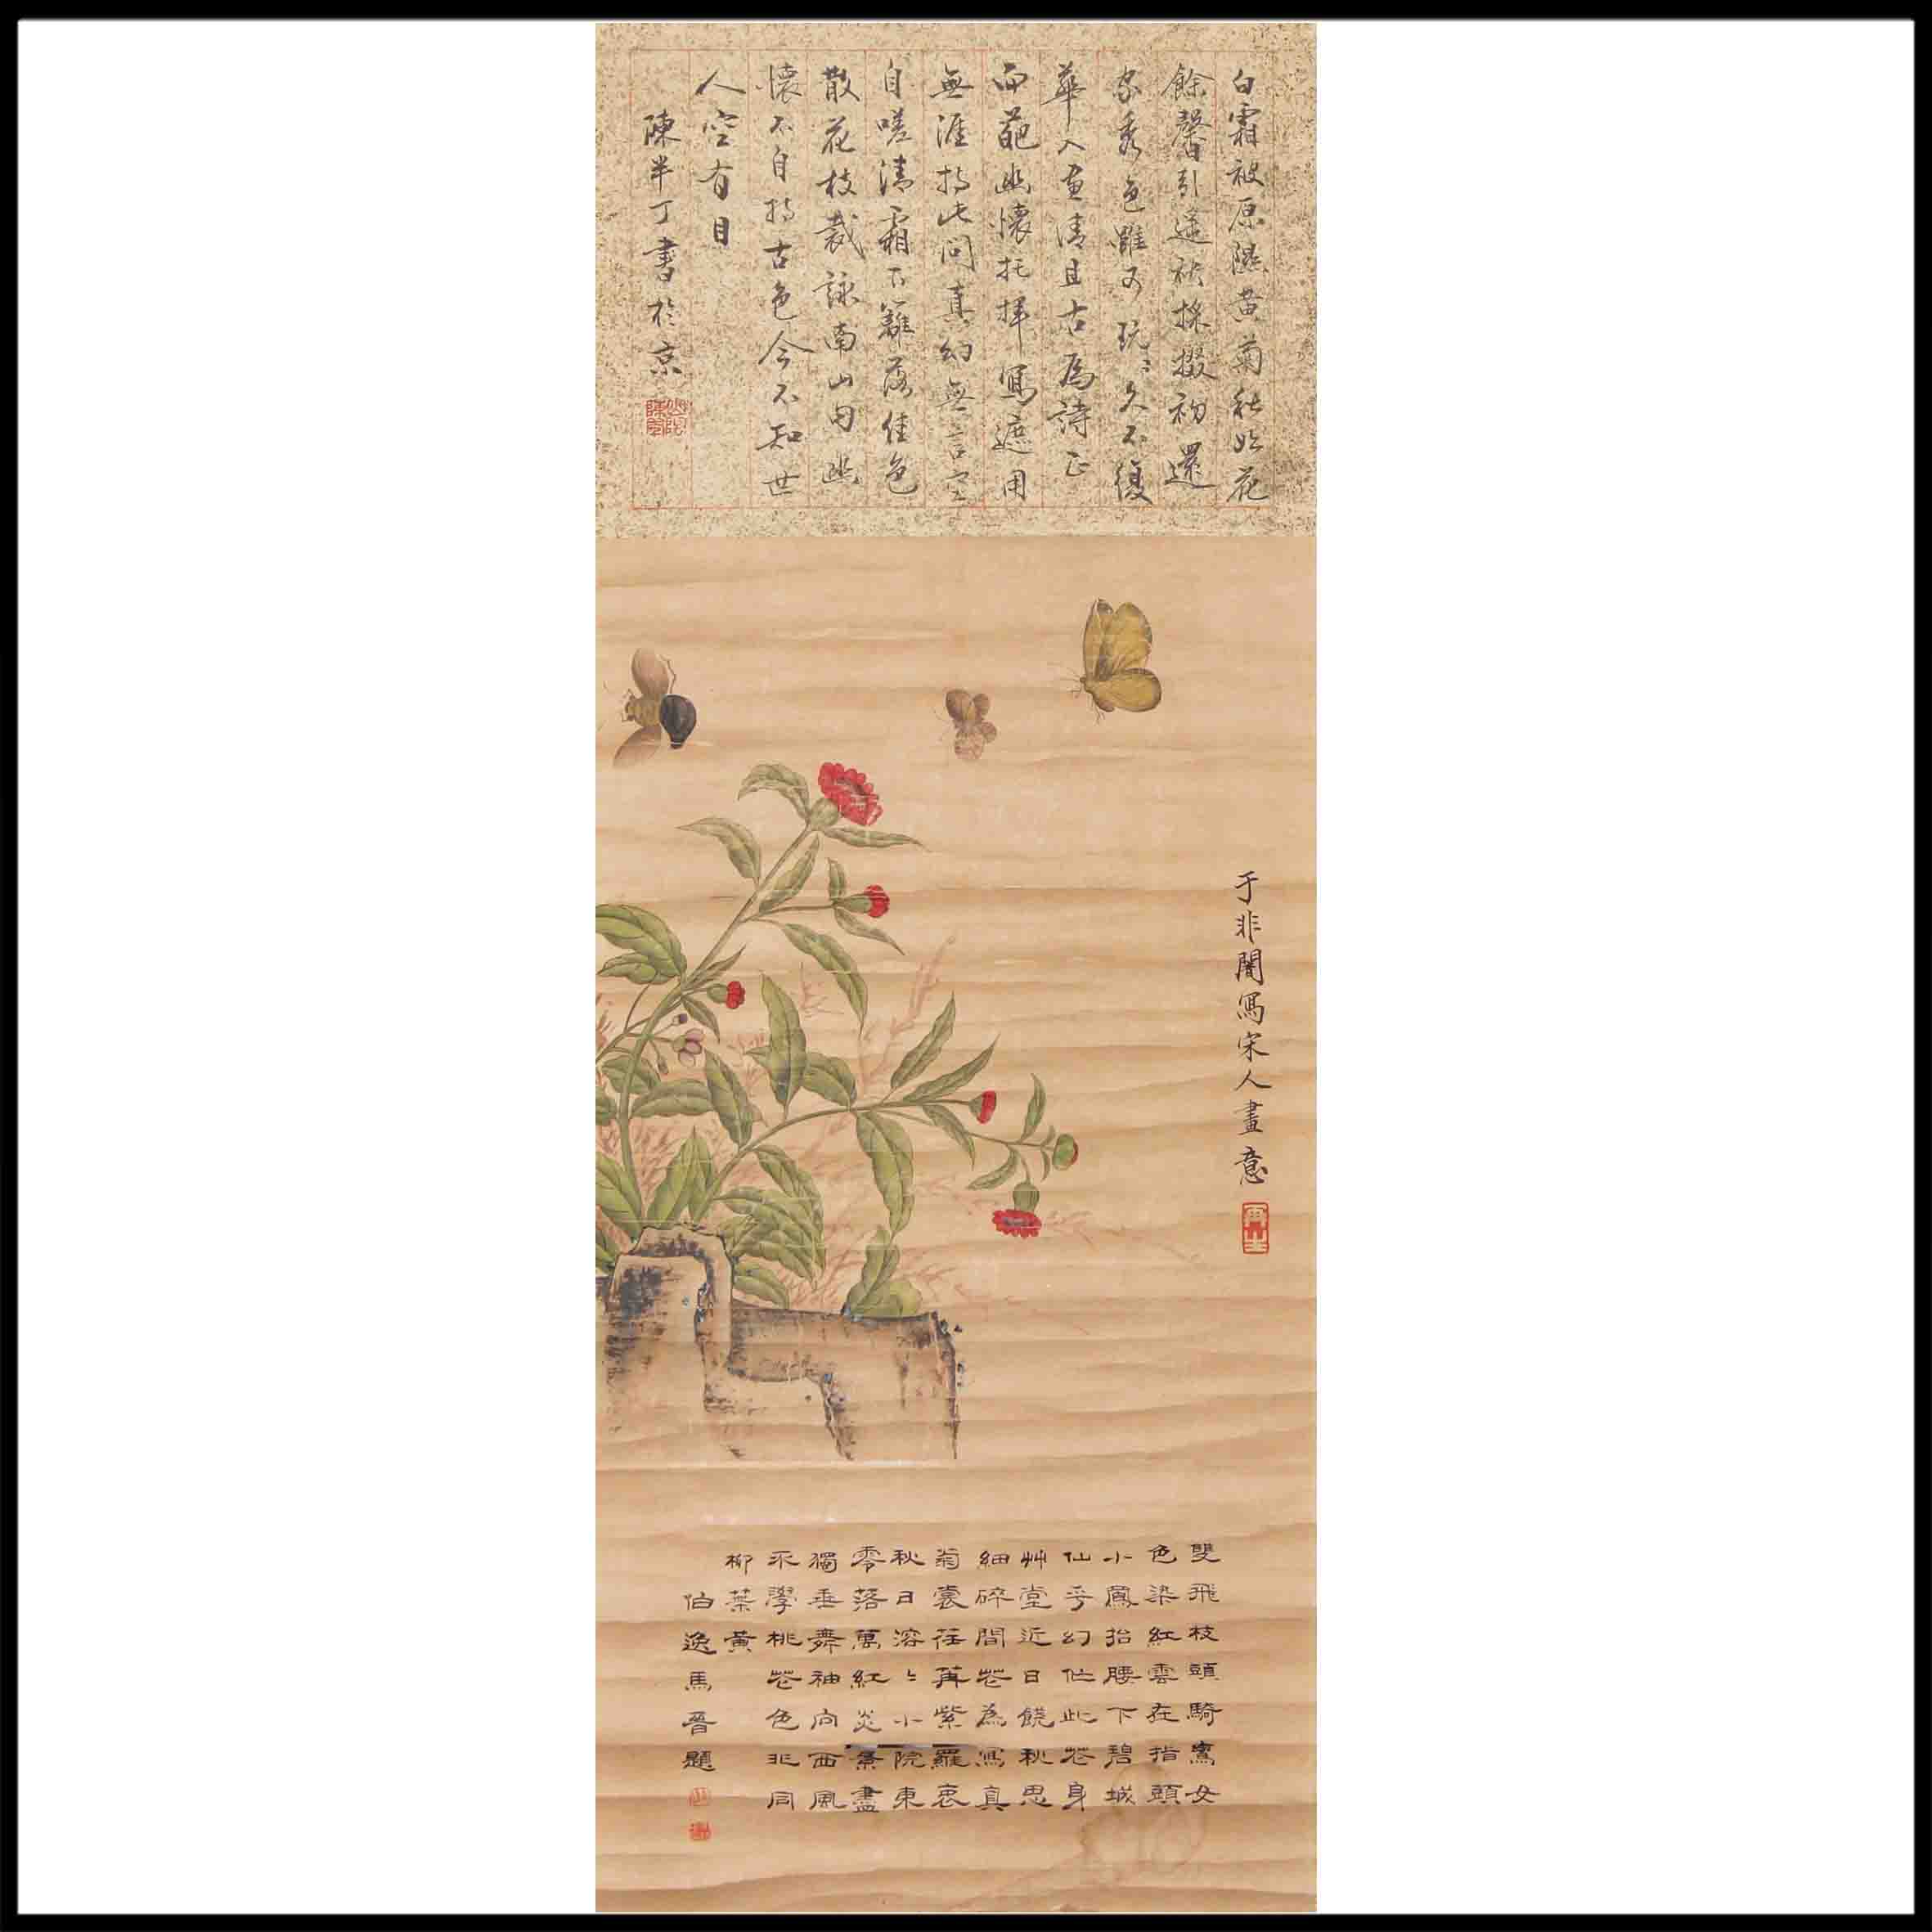 白霜被原隰黄菊秋始花
餘馨引遥袂採掇初還
家秀色雖可玩㆓久不復
華入畫清且古為詩正
而葩幽懷托揮寫遮用
無涯持此問真幻無言空
自嗟清霜下籬落佳色
散花枝裁詠南山句幽
懷不自持古色今不知世
人空有目
陳半丁書於京
于非闇寫宋人畫意
再生
雙飛枝頭騎鸞女
色染紅雲在指頭
小鳳抬腰下碧城
仙乎幻作此花身
艸堂近日饒秋思
細碎間花為寫真
翦裳荏苒紫羅衷
秋日溶〻小院東
零落萬紅炎景盡
獨垂舞袖向西風
不學桃花色非同
柳葉黃
伯逸馬晋題